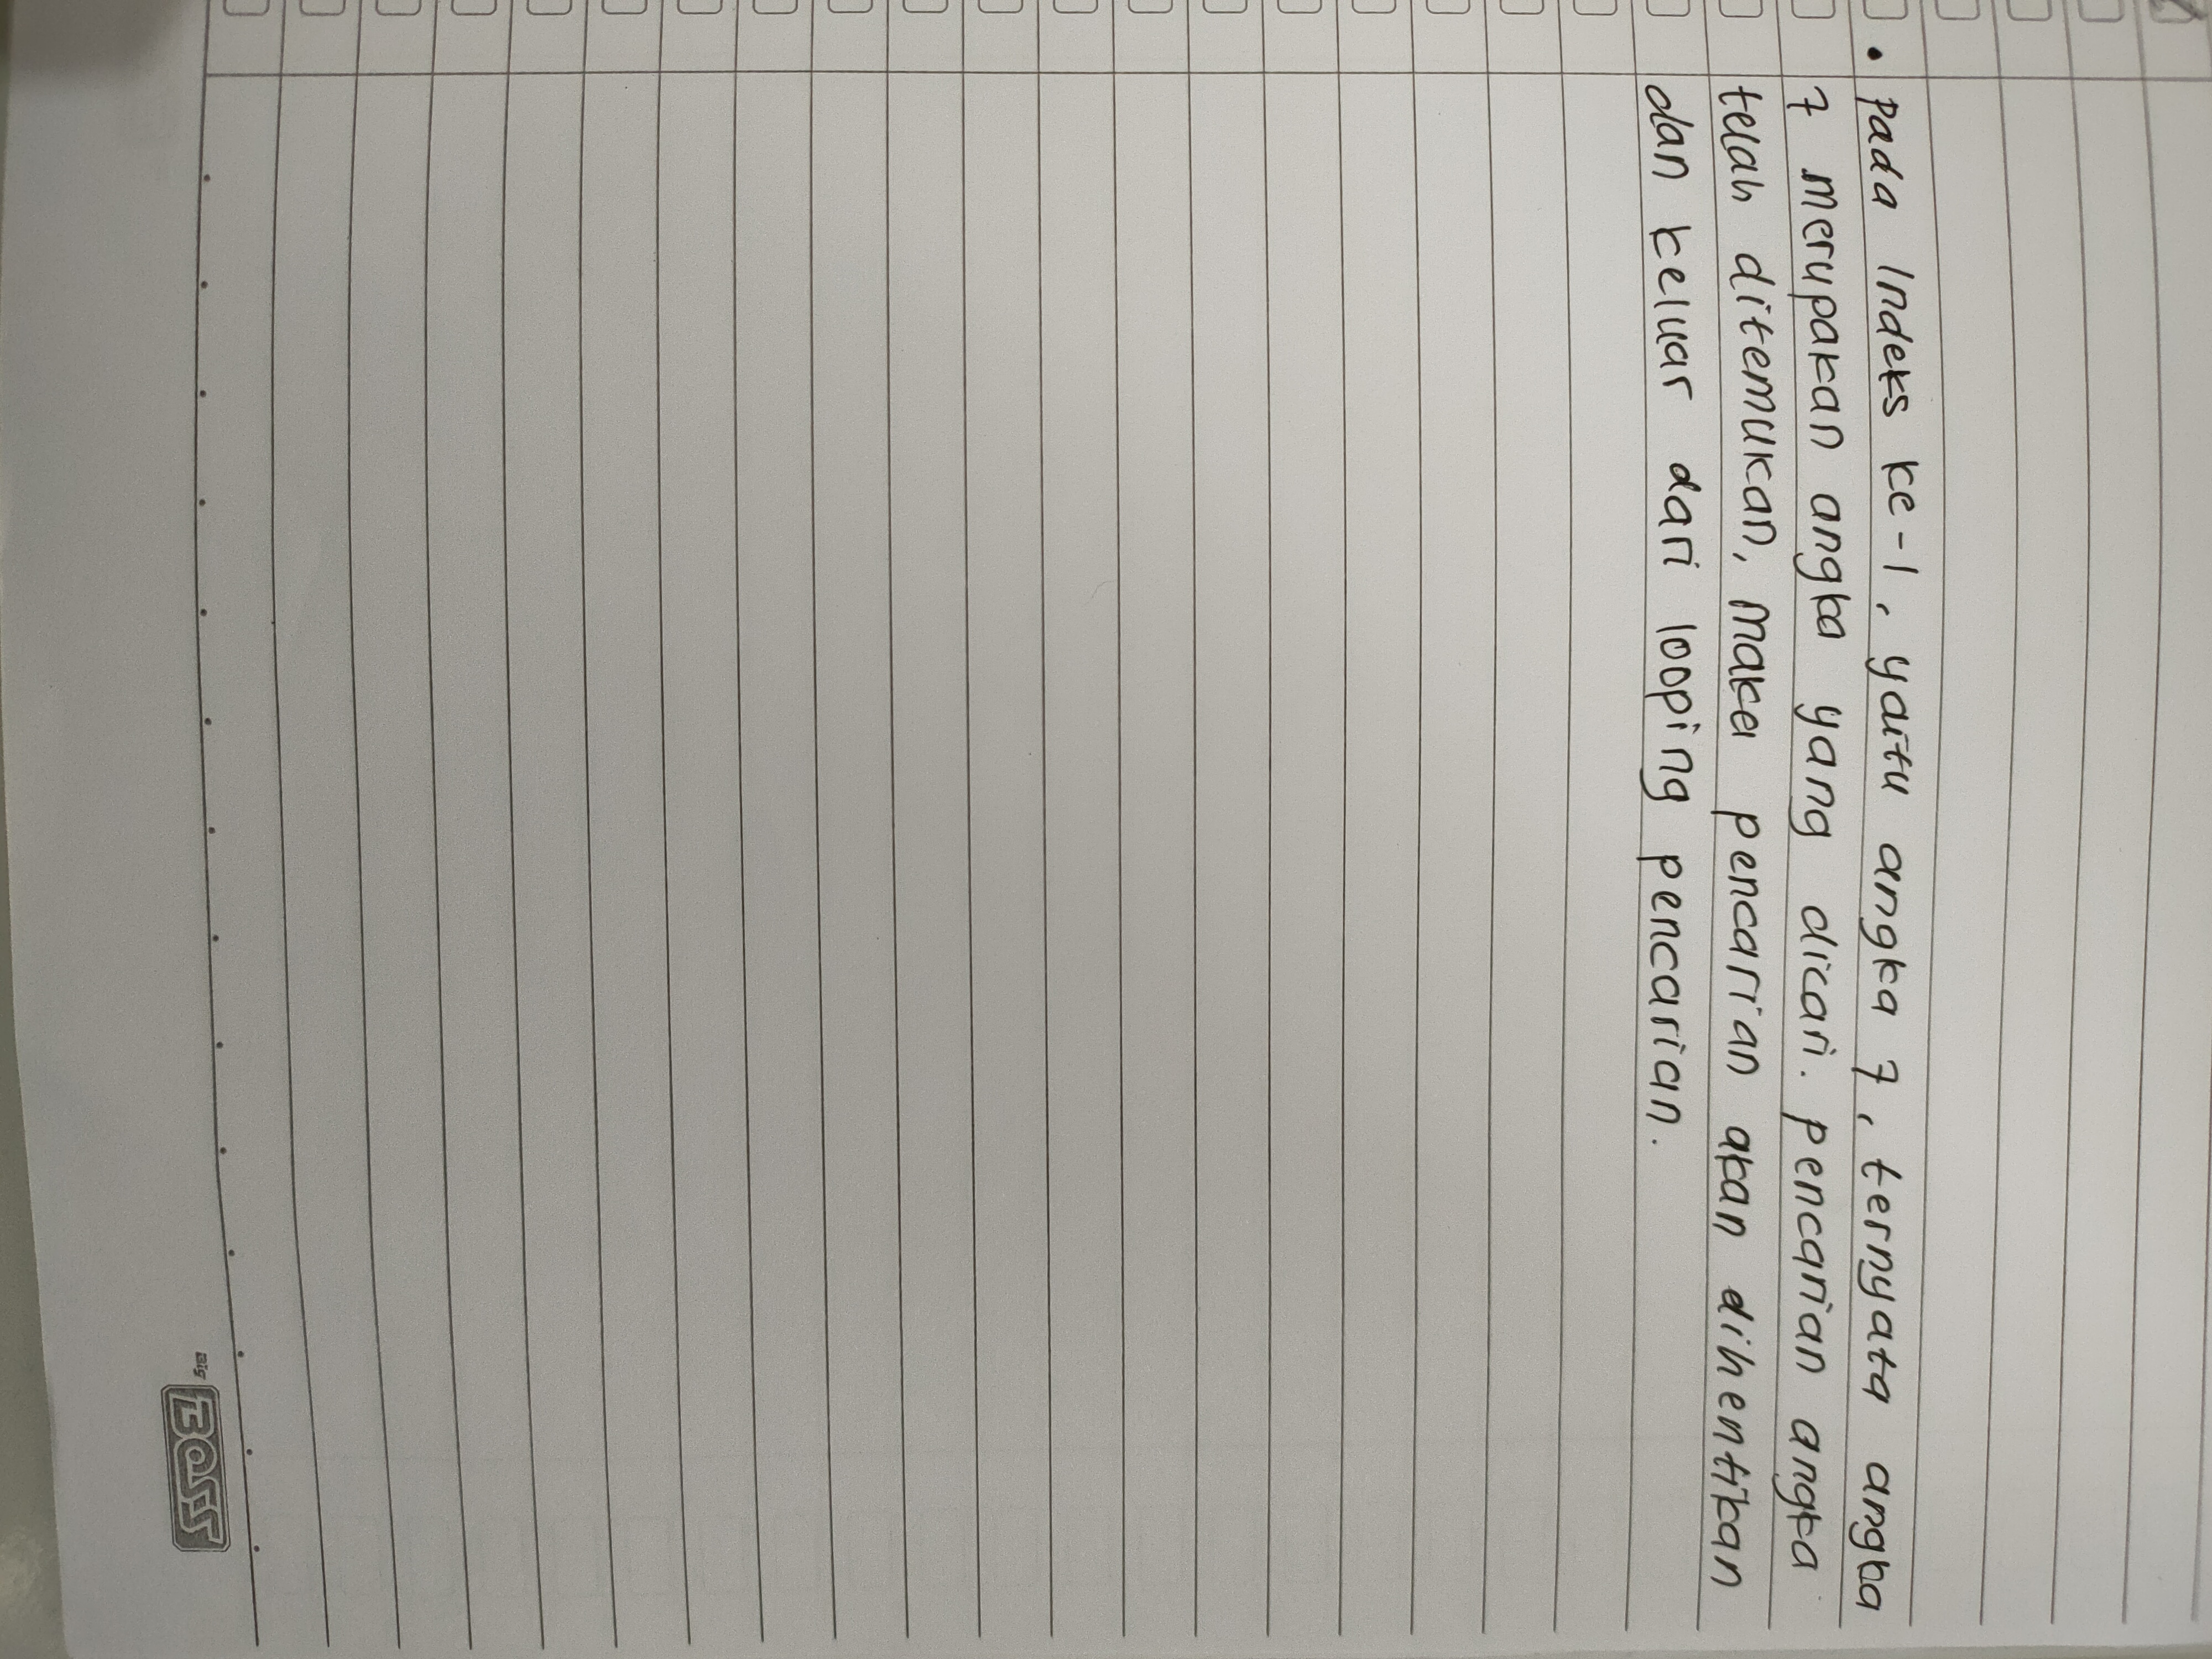 • Pada Indeks ke-1, yaitu angka 7, ternyata angka
7 merupakan angka yang dicari. pencarian angka
telah ditemukan, maka pencarian akan dihentikan
dan keluar dari looping pencarian.
Big
BOSS